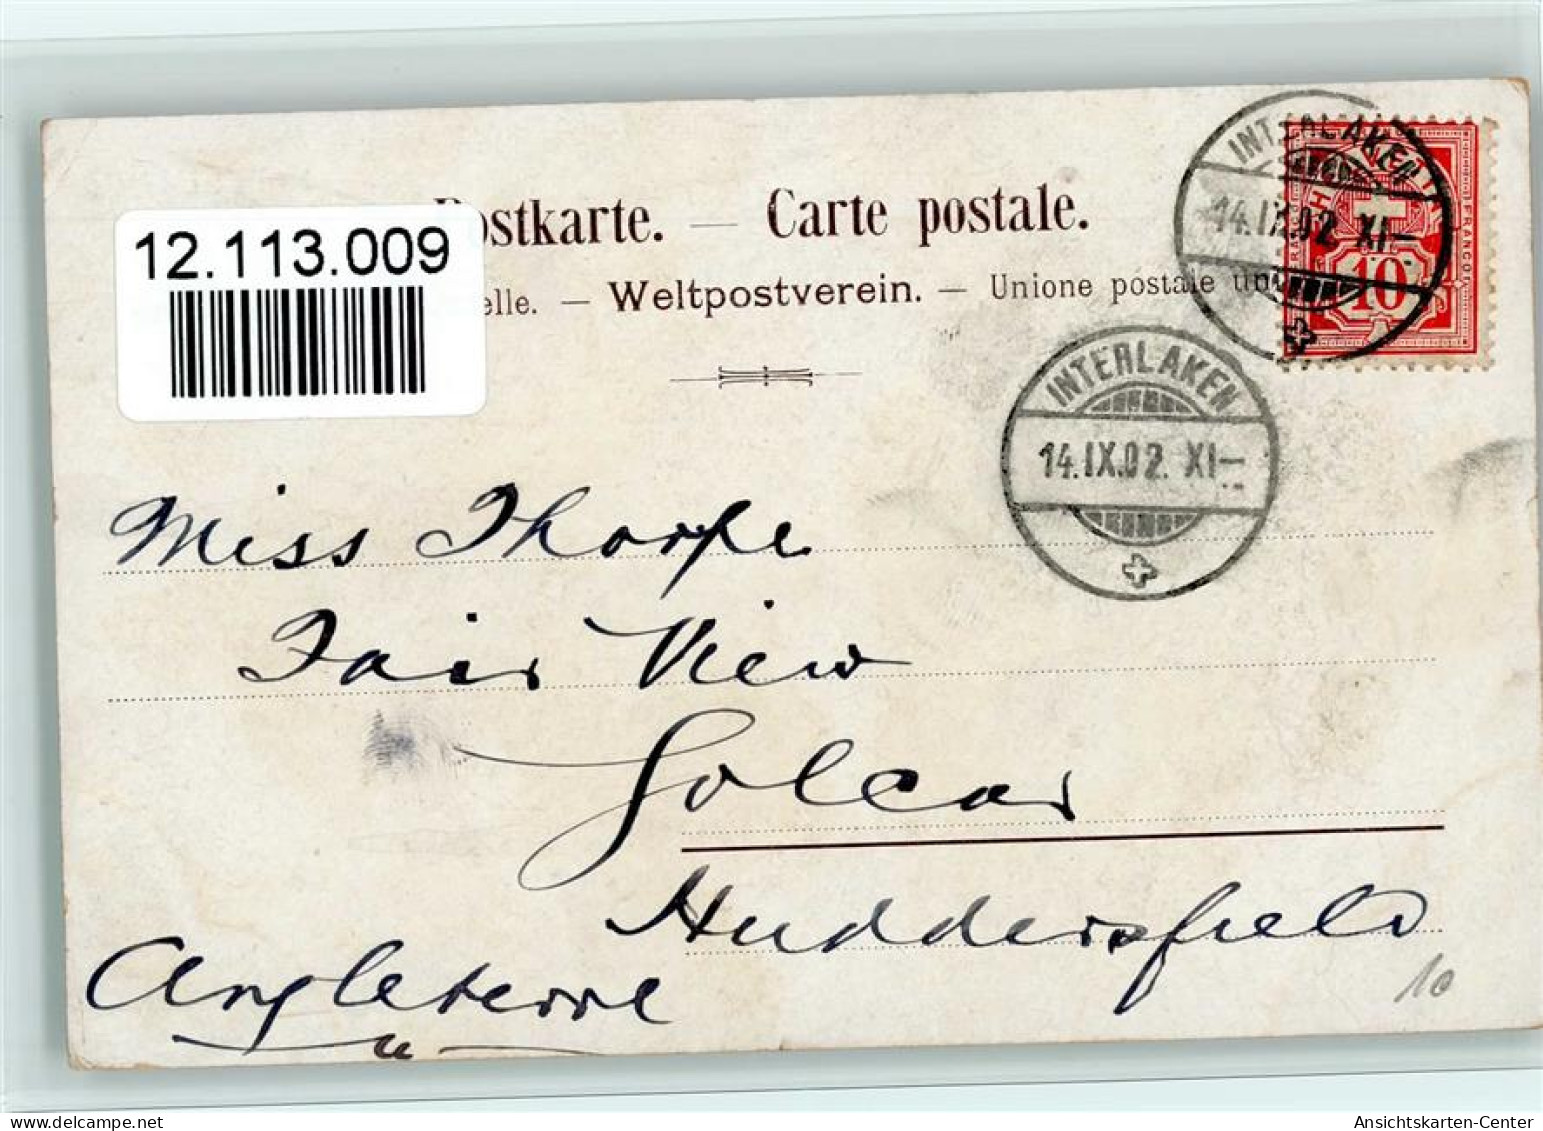 12.113.009
Postkarte. — Carte postale.
elle. — Weltpostverein. — Unione postale un
INTERLAKEN
14.IX.02. XI–
HELVETIA
FRANCO
10
INTERLAKEN
14.IX.02. XI–
Miss Thorpe
Fair View
Golcar
Huddersfield
Angleterre
10
Ansichtskarten-Center